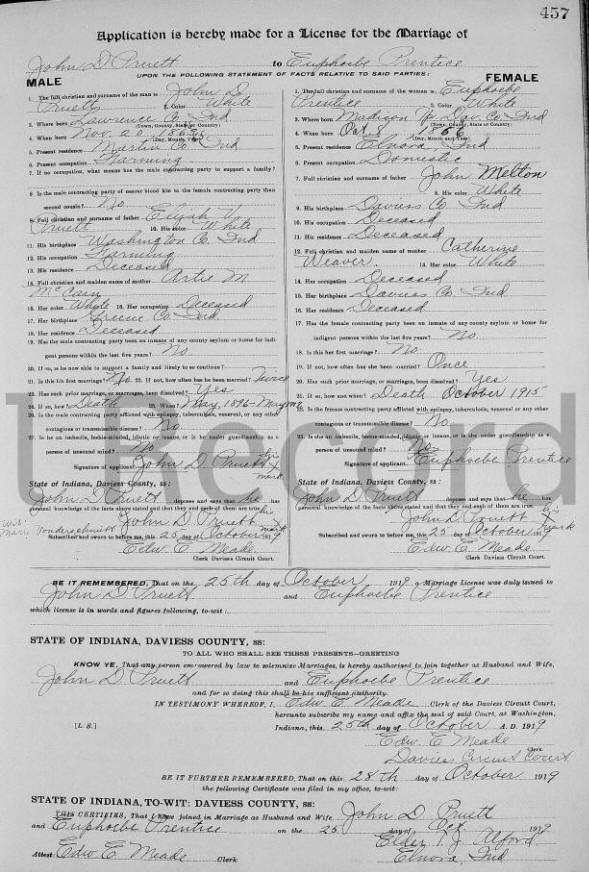 457
Application is hereby made for a License for the Marriage of
John D Pruett to Euphoebe Prentice
UPON THE FOLLOWING STATEMENT OF FACTS RELATIVE TO SAID PARTIES:
MALE
1. The full christian and surname of the man is John D.
Pruett 2. Color White
3. Where born Lawrence Co Ind
(Town, County, State or Country)
4. When born Nov. 20
(Day, Month, Year)
5. Present residence Martin Co Ind
6. Present occupation Farming
7. If no occupation, what means has the male contracting party to support a family?
8. Is the male contracting party of nearer blood kin to the female contracting party than
second cousin? No
9. Full christian and surname of father Elijah
Pruett 10. His color White
11. His birthplace Washington Co. Ind
12. His occupation Farming
13. His residence Deceased
14. Full christian and maiden name of mother Artie M
McCain
15. Her color White 16. Her occupation Deceased
17. Her birthplace Greene Co Ind.
18. Her residence Deceased
19. Has the male contracting party been an inmate of any county asylum or home for indi-
gent persons within the last five years? No
20. If so, is he now able to support a family and likely to so continue?
21. Is this his first marriage? No 22. If not, how often has he been married? Twice
23. Has such prior marriage, or marriages, been dissolved? Yes
24. If so, how? Death 25. When? May, 1896 - May
26. Is the male contracting party afflicted with epilepsy, tuberculosis, venereal, or any other
contagious or transmissible disease? No
27. Is he an imbecile, feeble-minded, idiotic or insane, or is he under guardianship as a
person of unsound mind? No
Signature of applicant John D Pruett his X mark
State of Indiana, Daviess County, ss:
John D Pruett deposes and says that he has
personal knowledge of the facts above stated and that they and each of them are true.
John D Pruett his mark
Subscribed and sworn to before me, this 25 day of October 1919
Edw E Meade
Clerk Daviess Circuit Court.
FEMALE
1. The full christian and surname of the woman is Euphoebe
Prentice 2. Color White
3. Where born Madison Tp Dav. Co Ind
(Town, County, State or Country)
4. When born Oct 8 1866
(Day, Month and Year)
5. Present residence Elnora, Ind
6. Present occupation Domestic
7. Full christian and surname of father John Melton
8. His color White
9. His birthplace Daviess Co Ind
10. His occupation Deceased
11. His residence Deceased
12. Full christian and maiden name of mother Catherine
Weaver 13. Her color White
14. Her occupation Deceased
15. Her birthplace Daviess Co Ind
16. Her residence Deceased
17. Has the female contracting party been an inmate of any county asylum or home for
indigent persons within the last five years? No
18. Is this her first marriage? No
19. If not, how often has she been married? Once
20. Has such prior marriage, or marriages, been dissolved? Yes
21. If so, how and when? Death October 1915
22. Is the female contracting party afflicted with epilepsy, tuberculosis, venereal or any other
contagious or transmissible disease? No
23. Is she an imbecile, feeble-minded, idiotic or insane, or is she under guardianship as a
person of unsound mind? No
Signature of applicant Euphoebe Prentice
State of Indiana, Daviess County, ss:
John D Pruett deposes and says that he has
personal knowledge of the facts above stated and that they and each of them are true.
John D Pruett his mark
Subscribed and sworn to before me, this 25 day of October 1919
Edw E Meade
Clerk Daviess Circuit Court.
BE IT REMEMBERED, That on the 25th day of October 1919 a Marriage License was duly issued to
John D Pruett and Euphoebe Prentice
which license is in words and figures following, to-wit:
STATE OF INDIANA, DAVIESS COUNTY, ss:
TO ALL WHO SHALL SEE THESE PRESENTS—GREETING
KNOW YE, That any person empowered by law to solemnize Marriages, is hereby authorized to join together as Husband and Wife,
John D Pruett and Euphoebe Prentice
and for so doing this shall be his sufficient authority.
IN TESTIMONY WHEREOF, I, Edw E Meade, Clerk of the Daviess Circuit Court,
hereunto subscribe my name and affix the seal of said Court, at Washington,
[L. S.] Indiana, this 25th day of October A. D. 1919
Edw. E Meade Clerk
Daviess Circuit Court
BE IT FURTHER REMEMBERED, That on this 28th day of October 1919
the following Certificate was filed in my office, to-wit:
STATE OF INDIANA, TO-WIT: DAVIESS COUNTY, ss:
THIS CERTIFIES, That I have joined in Marriage as Husband and Wife John D Pruett
and Euphoebe Prentice on the 25 day of Oct 1919
Elder T. J. Alford
Attest: Edw E Meade Clerk Elnora, Ind